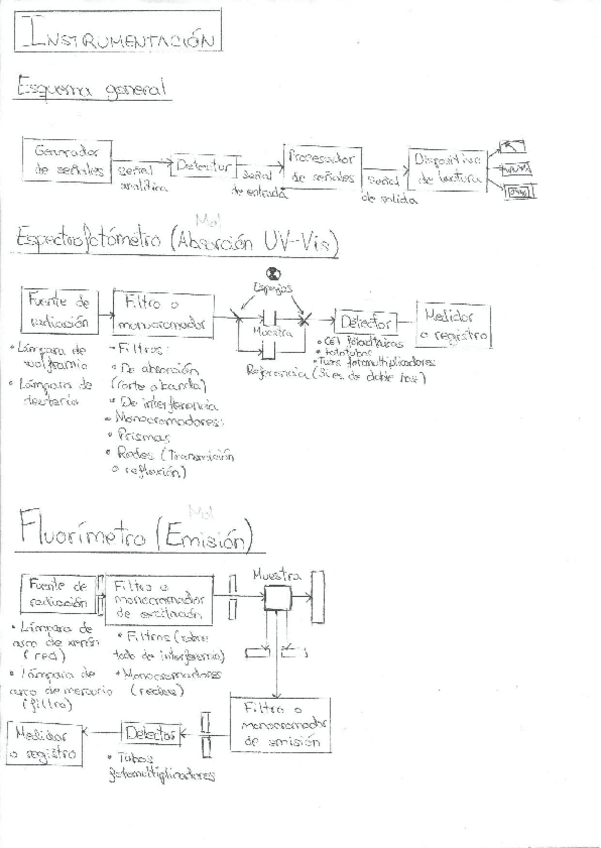 INSTRUMENTACIÓN
Esquema general
Generador
de señales
señal
analítica
Detector
señal
de entrada
Procesador
de señales
señal
de salida
Dispositivo
de lectura
Mol
Espectrofotómetro (Absorción UV-Vis)
Fuente de
radiación
Filtro o
monocromador
Espejos
Muestra
Referencia (Si es de doble haz)
Detector
Medidor
o registro
• Lámpara de
wolframio
• Lámpara de
deuterio
- Filtros:
• De absorción
(corte o banda)
• De interferencia
• Monocromadores:
• Prismas
• Redes (Transmisión
o reflexión)
• Cél fotoeléctricas
• Fototubos
• Tubos fotomultiplicadores
Mol
Fluorímetro (Emisión)
Fuente de
radiación
Filtro o
monocromador
de excitación
Muestra
• Lámpara de
arco de xenón
(red)
• Lámpara de
arco de mercurio
(filtro)
• Filtros (sobre
todo de interferencia)
• Monocromadores
(redes)
Filtro o
monocromador
de emisión
Detector
• Tubos
fotomultiplicadores
Medidor
o registro